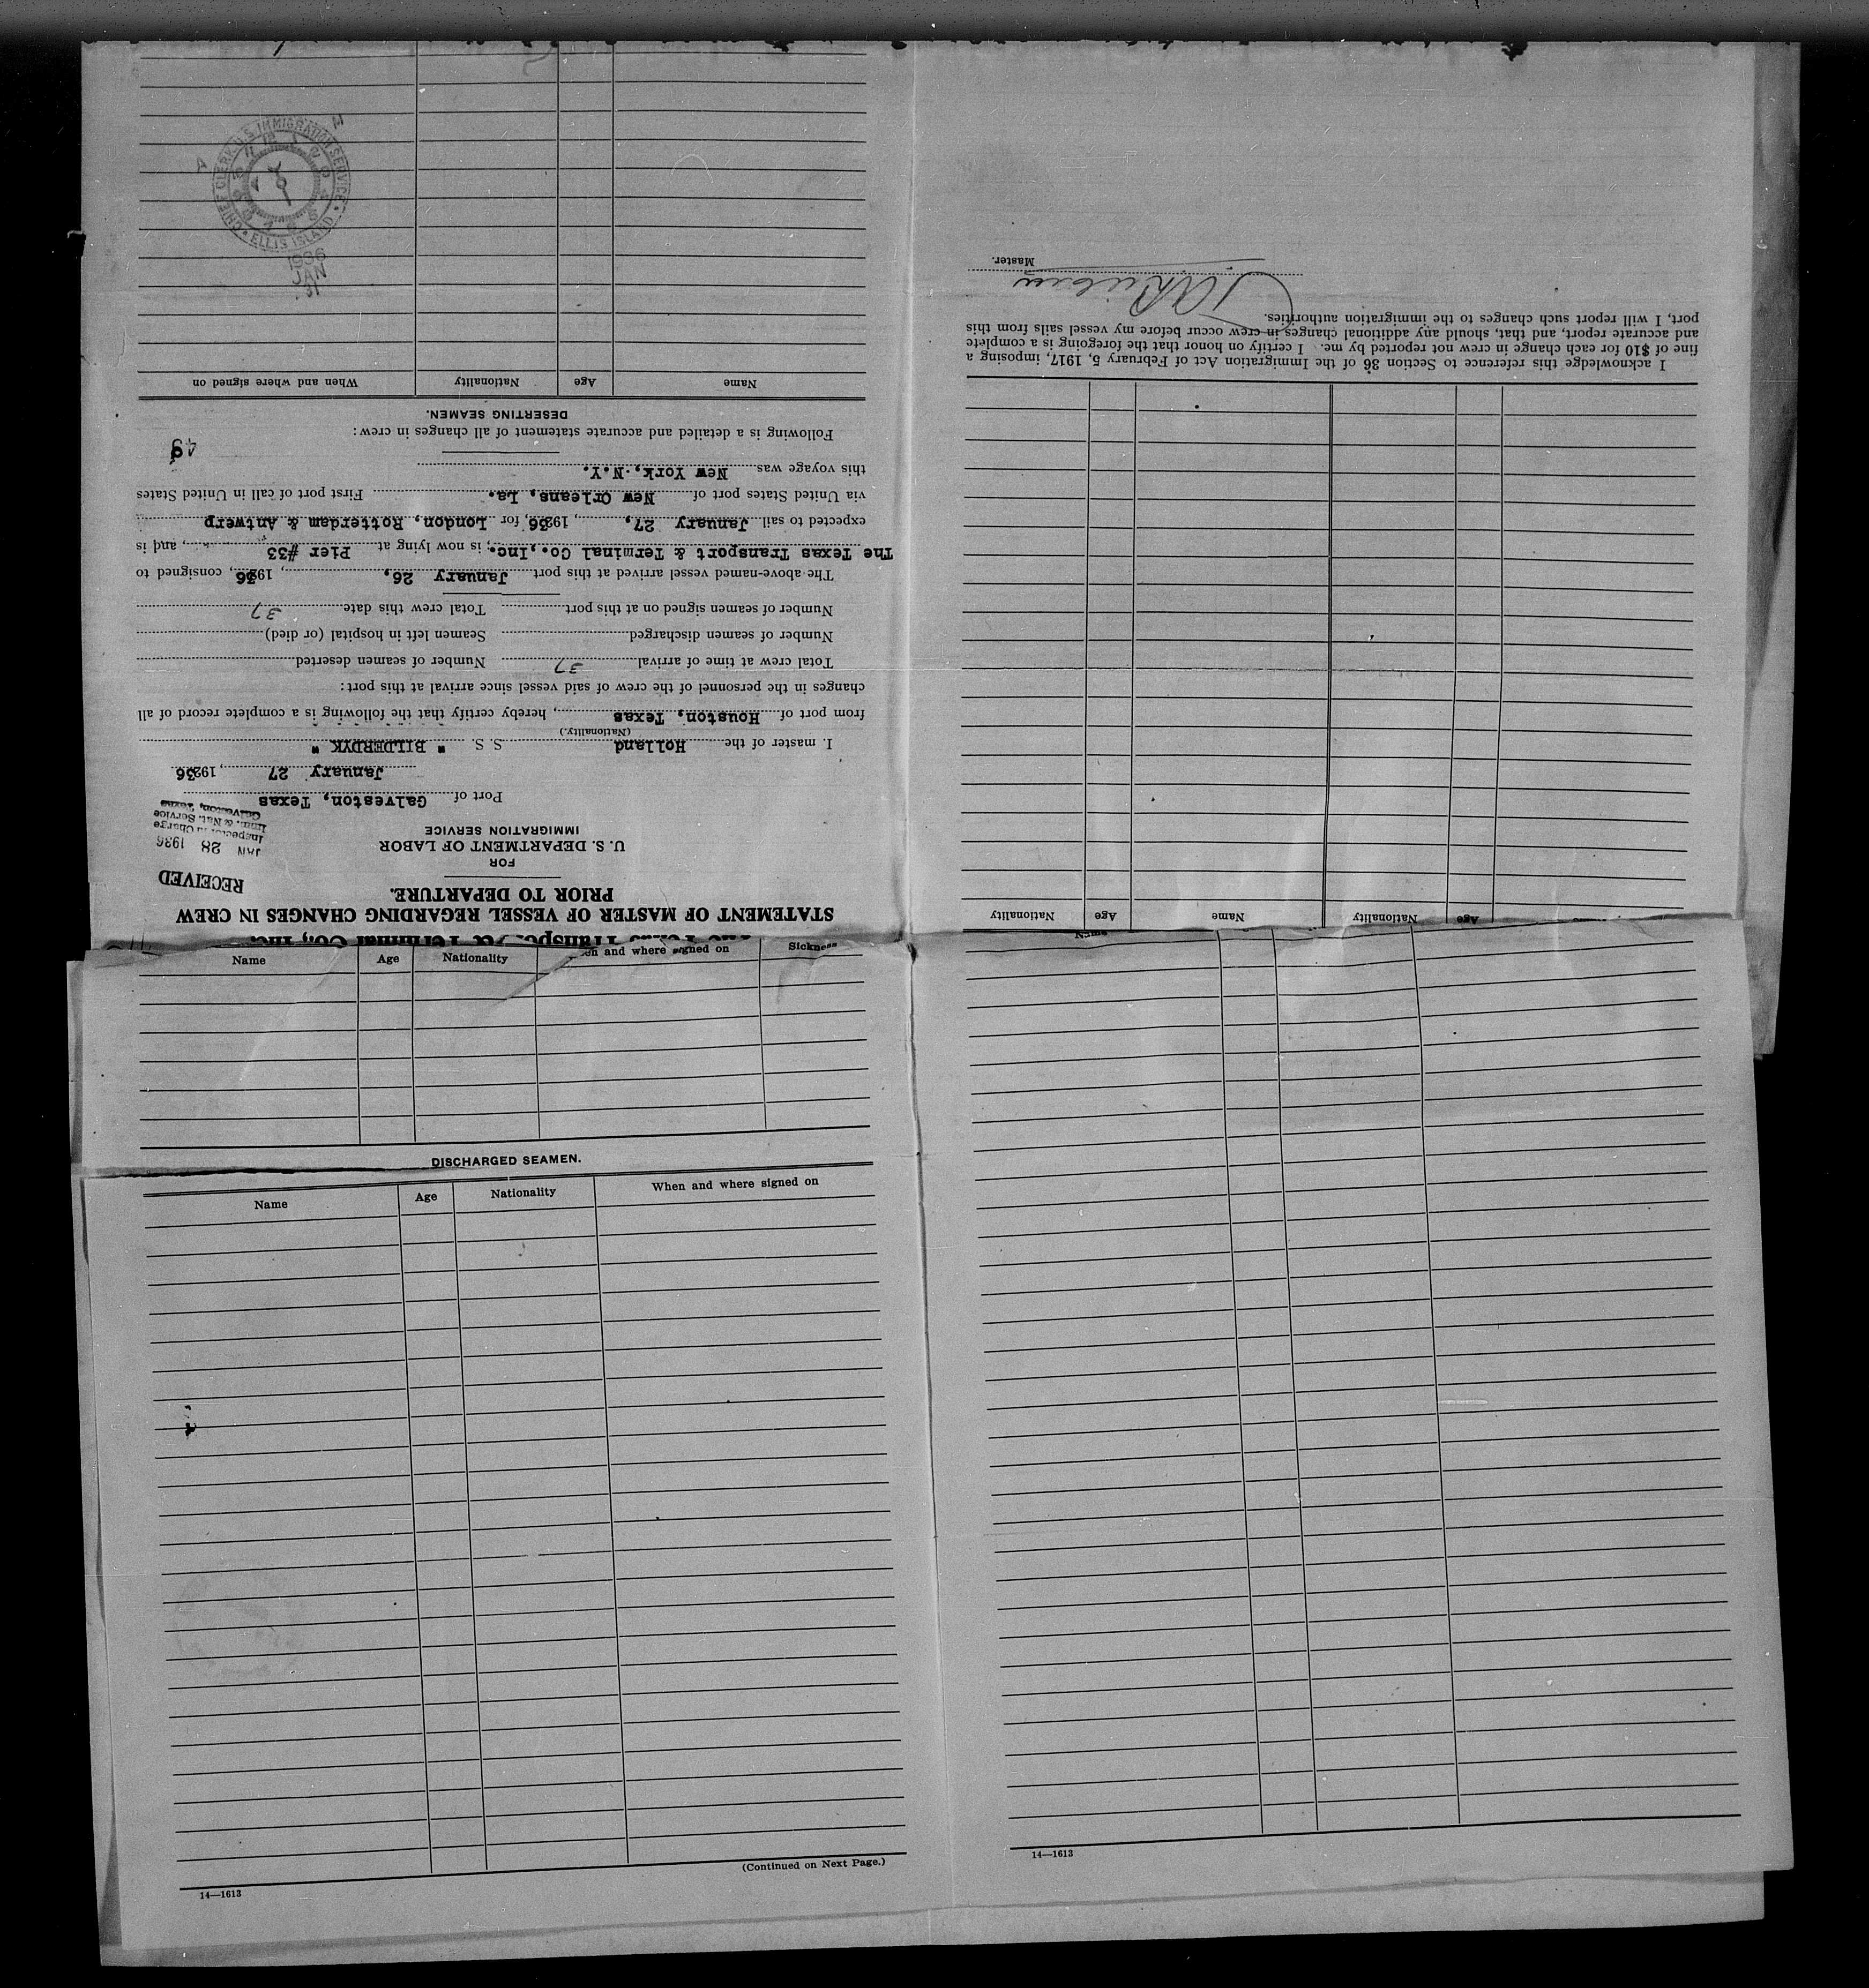 Texas Transport & Terminal Co., Inc.
STATEMENT OF MASTER OF VESSEL REGARDING CHANGES IN CREW
PRIOR TO DEPARTURE.
FOR
U. S. DEPARTMENT OF LABOR
IMMIGRATION SERVICE
RECEIVED
JAN 28 1936
Inspector in Charge
Imm. & Nat. Service
Galveston, Texas
Port of Galveston, Texas
January 27, 19236
I, master of the Holland S. S. " BILDERDYK "
(Nationality.)
from port of Houston, Texas, hereby certify that the following is a complete record of all
changes in the personnel of the crew of said vessel since arrival at this port:
Total crew at time of arrival 37 Number of seamen deserted
Number of seamen discharged Seamen left in hospital (or died)
Number of seamen signed on at this port Total crew this date 37
The above-named vessel arrived at this port January 26, 1936, consigned to
The Texas Transport & Terminal Co., Inc.; is now lying at Pier #33, and is
expected to sail January 27, 1936, for London, Rotterdam & Antwerp
via United States port of New Orleans, La. First port of call in United States
this voyage was New York, N.Y.
49
Following is a detailed and accurate statement of all changes in crew:
DESERTING SEAMEN.
Name Age Nationality When and where signed on
31
JAN
1936
CHIEF CLERK, U. S. IMMIGRATION SERVICE
ELLIS ISLAND
A M
Name Age Nationality Name Age Nationality
I acknowledge this reference to Section 36 of the Immigration Act of February 5, 1917, imposing a
fine of $10 for each change in crew not reported by me. I certify on honor that the foregoing is a complete
and accurate report, and that, should any additional changes in crew occur before my vessel sails from this
port, I will report such changes to the immigration authorities.
Master.
Name Age Nationality When and where signed on Sickness
DISCHARGED SEAMEN.
Name Age Nationality When and where signed on
(Continued on Next Page.)
14—1613
14—1613